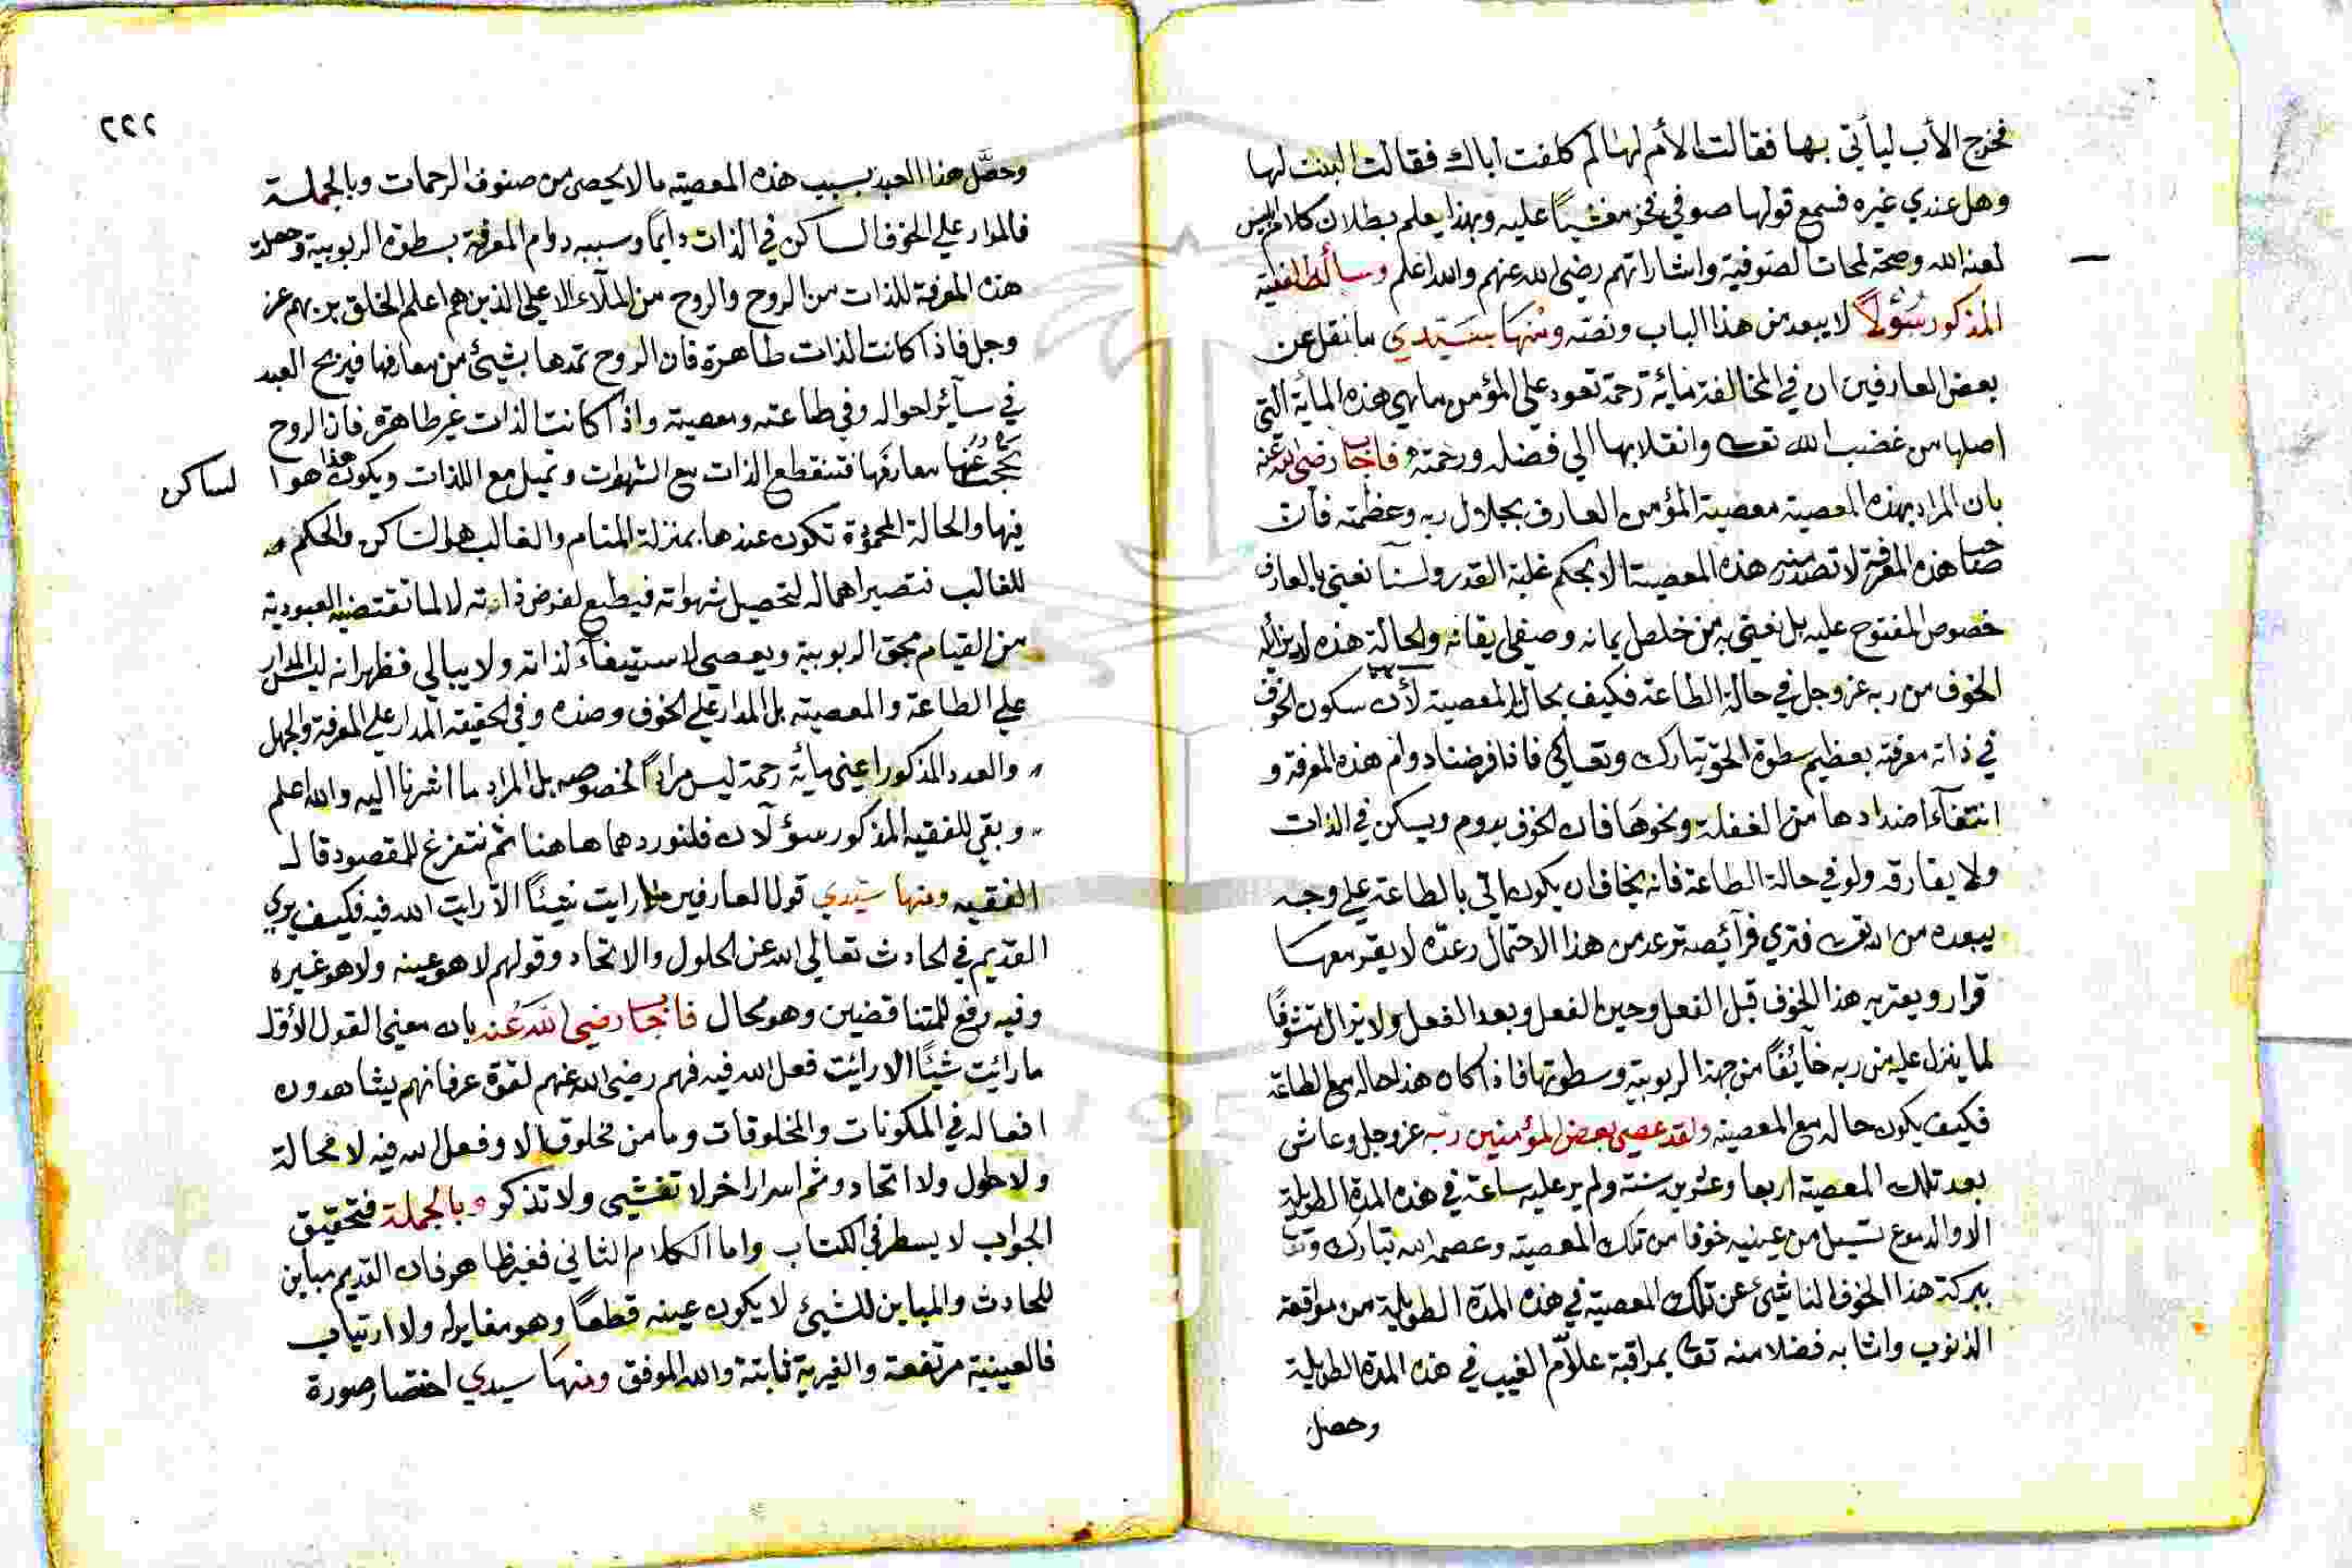 فخرج الأب ليأتي بها فقالت الأم لها لم كلفت اباك فقالت البنت لها
وهل عندي غيره فسمع قولها صوفي فخر مغشيا عليه وبهذا يعلم بطلان كلام ابليس
لعنه الله وصحة لمحات الصوفية واشاراتهم رضي الله عنهم والله اعلم وسأله الفقيه
المذكور سؤلاً لا يبعد من هذا الباب ونصه ومنها سيدي ما نقل عن
بعض العارفين ان في المخالفة مائة رحمة تعود علي المؤمن ما هي هذه المأية التي
اصلها من غضب الله تعا وانقلابها الي فضله ورحمته فاجاب رضي الله عنه
بان المراد بهذه المعصية معصية المؤمن العارف بجلال ربه وعظمته فان
صاحب هذه المعرفة لا تصدر منه هذه المعصية الا بحكم غلبة القدر ولسنا نعني بالعارف
خصوص المفتوح عليه بل نعني به من خلص ايمانه وصفي ايقانه والحالة هذه لا يزايله
الخوف من ربه عز وجل في حالة الطاعة فكيف بحال المعصية لأن سبب سكون الخوف
في ذاته معرفته بعظيم سطوة الحق تبارك وتعالي فاذا فرضنا دوام هذه المعرفة و
انتفآء اضدادها من الغفلة ونحوها فان الخوف يدوم ويسكن في الذات
ولا يفارقه ولو في حالة الطاعة فانه يخاف ان يكون اتي بالطاعة علي وجه
يبعده من الله تعا فتري فرآئصه ترعد من هذا الاحتمال رعدة لا يقر معها
قرار ويعتريه هذا الخوف قبل الفعل وحين الفعل وبعد الفعل ولا يزال متشوفًا
لما ينزل عليه من ربه خآئفًا من جهة الربوبية وسطوتها فاذا كان هذا حاله مع الطاعة
فكيف يكون حاله مع المعصية ولقد عصي بعض المؤمنين ربه عز وجل وعاش
بعد تلك المعصية اربعا وعشرين سنة ولم يمر عليه ساعة في هذه المدة الطويلة
الا والدموع تسيل من عينيه خوفا من تلك المعصية وعصمه الله تبارك وتعا
ببركة هذا الخوف الناشئ عن تلك المعصية في هذه المدة الطويلة من مواقعة
الذنوب واثابه فضلا منه تعا بمراقبة علاّم الغيب في هذه المدة الطويلة
وحصل
٢٢٢
وحصَّل هذا العبد بسبب هذه المعصية ما لا يحصى من صنوف الرحمات وبالجملة
فالمدار علي الخوف الساكن في الذات دايمًا وسببه دوام المعرفة بسطوة الربوبية وحصلت
هذه المعرفة للذات من الروح والروح من الملآء الاعلي الذين هم اعلم الخلق بربهم عز
وجل فاذا كانت الذات طاهرة فان الروح تمدها بشيئ من معارفها فيربح العبد
في سآئر احواله وفي طاعته ومعصيته واذا كانت الذات غير طاهرة فان الروح
تحجب عنها معارفها فتنقطع الذات مع الشهوات وتميل مع اللذات ويكون هذا هو ا لساكن
فيها والحالة المحمودة تكون عندها بمنزلة المنام والغالب هو الساكن والحكم
للغالب فتصير اعماله لتحصيل شهواته فيطيع لغرض ذاته لا لما تقتضيه العبودية
من القيام بحق الربوبية ويعصي لاستيفآء لذاته ولا يبالي فظهر انه ليس المدار
علي الطاعة والمعصية بل المدار علي الخوف وضده وفي الحقيقة المدار علي المعرفة والجهل
والعدد المذكور اعني مأية رحمة ليس مرادًا لخصوصه بل المراد ما اشرنا اليه والله اعلم
وبقي للفقيه المذكور سؤلآن فلنوردهما هاهنا ثم نتفرغ للمقصود قال
الفقيه ومنها سيدي قول العارفين ما رايت شيئًا الّا رايت الله فيه فكيف يري
القديم في الحادث تعالي الله عن الحلول والاتحاد وقولهم لا هو عينه ولا هو غيره
وفيه رفع للمتناقضين وهو محال فاجاب رضي الله عنه بان معني القول الأول
ما رأيت شيئًا الا رأيت فعل الله فيه فهم رضي الله عنهم لقوة عرفانهم يشاهدون
افعاله في المكونات والمخلوقات وما من مخلوق الا وفعل الله فيه لا محالة
ولا حلول ولا اتحاد وثم اسرار اخر لا تفشي ولا تذكر وبالجملة فتحقيق
الجواب لا يسطر في الكتاب واما الكلام الثاني فغير ظاهر فان القديم مباين
للحادث والمباين للشيئ لا يكون عينه قطعًا وهو مغاير له ولا ارتياب
فالعينية مرتفعة والغيرية ثابتة والله الموفق ومنها سيدي اختصار صورة